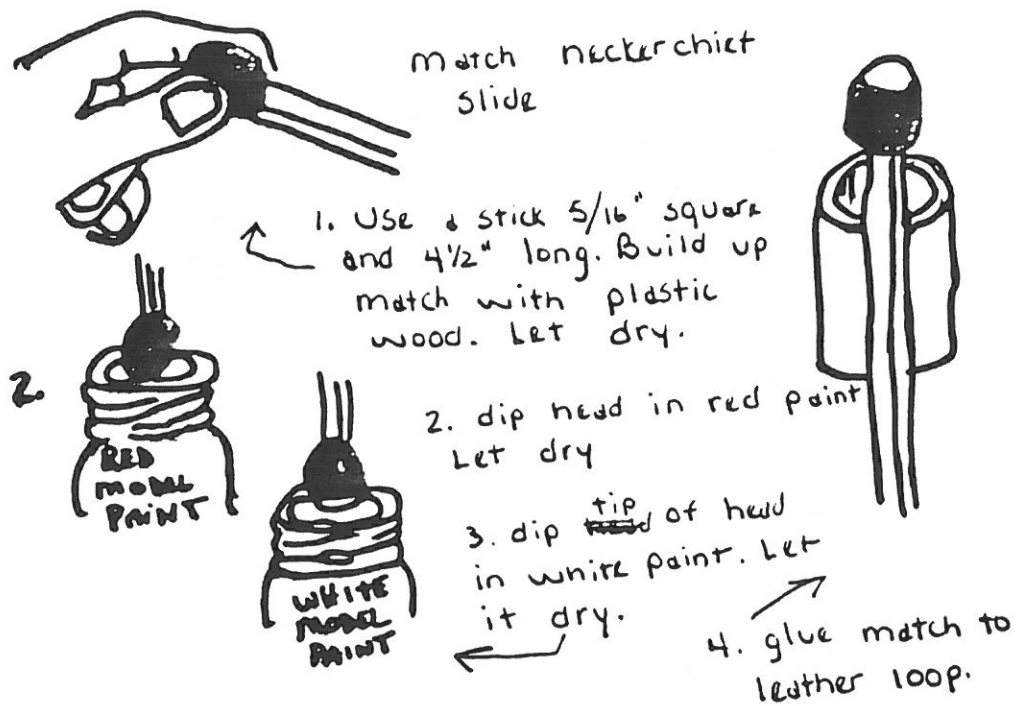 match neckerchief
slide
1. Use a stick 5/16" square
and 4 1/2" long. Build up
match with plastic
wood. Let dry.
2.
RED
MODEL
PAINT
2. dip head in red paint
Let dry
3. dip tip of head
in white paint. Let
it dry.
WHITE
MODEL
PAINT
4. glue match to
leather loop.